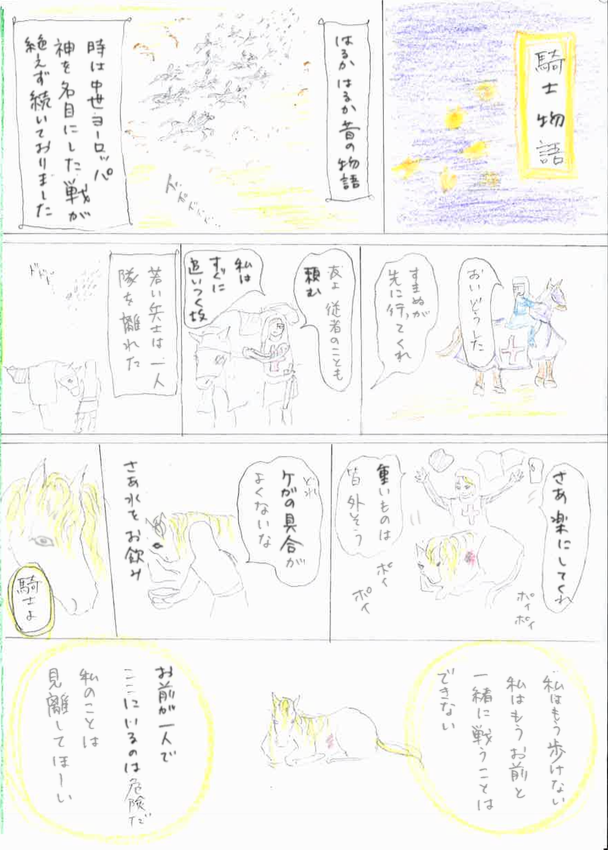 騎士物語
はるかはるか昔の物語
ドドドドド…
時は中世ヨーロッパ
神を名目にした戦が
絶えず続いておりました
おいどうした
すまぬが
先に行ってくれ
友よ従者のことも
頼む
私は
すぐに
追いつく故
若い兵士は一人
隊を離れた
ドドド
さあ楽にしてくれ
重いものは
皆外そう
ポイ
ポイ
ポイ
ポイ
どれ
ケガの具合が
よくないな
さあ水をお飲み
騎士よ
私はもう歩けない
私はもうお前と
一緒に戦うことは
できない
お前が一人で
ここにいるのは危険だ
私のことは
見離してほしい